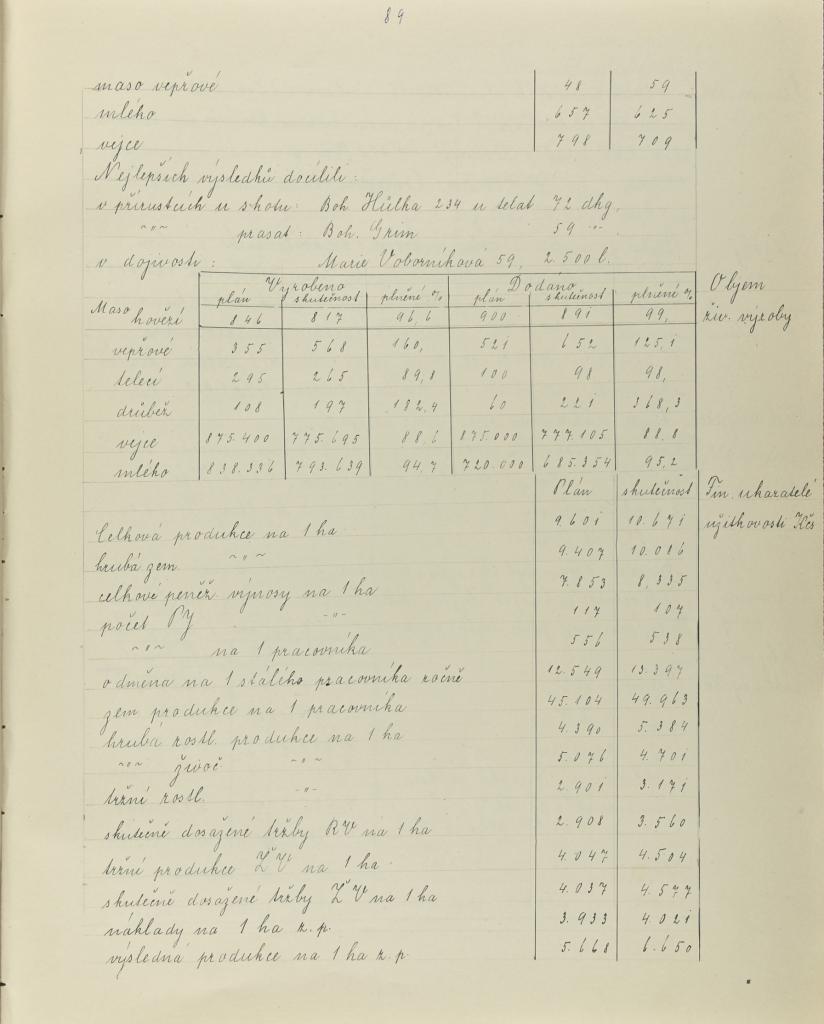 89
maso vepřové 48 59
mléko 657 625
vejce 798 709
Nejlepších výsledků docílili:
v přírustcích u skotu: Boh. Hůlka 234 u telat 72 dkg.
" " prasat: Boh. Grim 59 "
v dojivosti: Marie Voborníková 59, 2.500 l.
Vyrobeno Dodáno Objem
plán skutečnost plněné % plán skutečnost plněné % živ. výroby
Maso hovězí 846 817 96,6 900 891 99,
vepřové 355 568 160, 521 652 125,1
telecí 295 265 89,8 100 98 98,
drůbež 108 197 182,4 60 221 368,3
vejce 875.400 775.695 88,6 875.000 777.105 88,8
mléko 838.336 793.639 94,7 720.000 685.354 95,2
Plán skutečnost Fin. ukazatelé
užitkovosti Kčs
Celková produkce na 1 ha 9.601 10.671
hrubá zem. " 9.407 10.016
celkové peněž. výnosy na 1 ha 7.853 8,335
počet PJ " 117 107
" na 1 pracovníka 556 538
odměna na 1 stálého pracovníka ročně 12.549 13.397
zem produkce na 1 pracovníka 45.104 49.963
hrubá rostl. produkce na 1 ha 4.390 5.384
" živoč. " 5.076 4.701
tržní rostl. " 2.901 3.171
skutečně dosažené tržby RV na 1 ha 2.908 3.560
tržní produkce ŽV na 1 ha 4.047 4.504
skutečně dosažené tržby ŽV na 1 ha 4.037 4.577
náklady na 1 ha z.p. 3.933 4.021
výsledná produkce na 1 ha z.p. 5.668 6.650